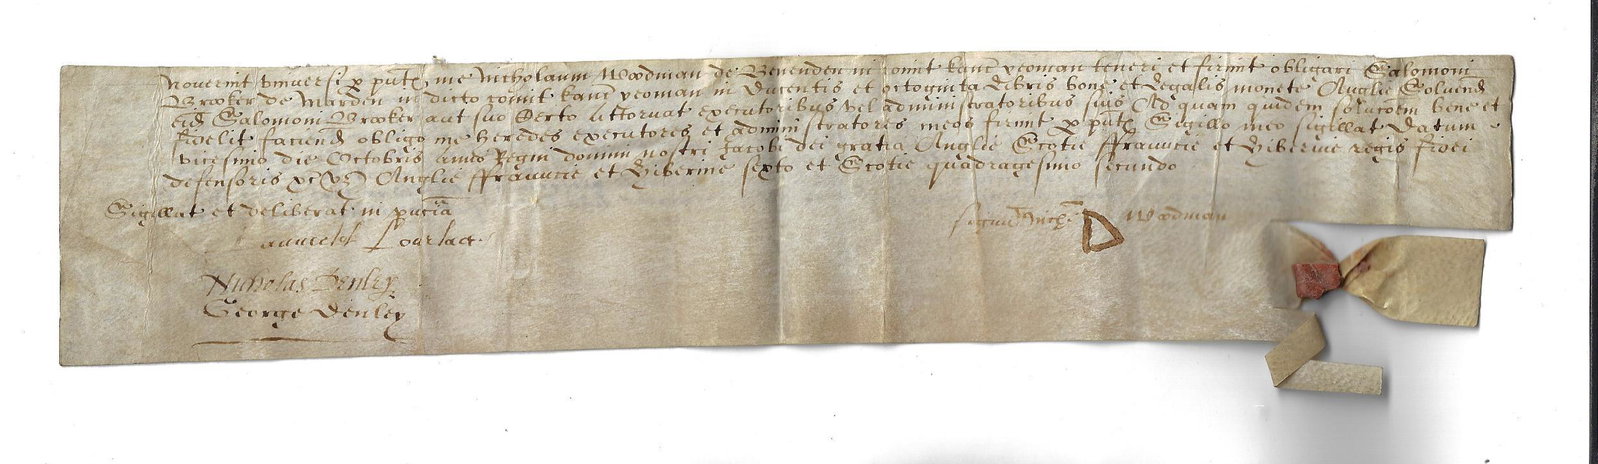 Noverint universi p put me Nicholaum Woodman de Benenden in comit Kanc yeoman teneri et firmit obligari Salomoni
Brooker de Marden in dicto comit Kanc yeoman in Ducentis et octoginta libris bone et legalis monete Anglie Solvend
eid Salomoni Brooker aut suo certo Attornat executoribus vel administratoribus suis Ad quam quidem soluc̃oem bene et
fidelit faciend obligo me heredes executores et administratores meos firmit p put Sigillo meo sigillat Datum
vicesimo die Octobris anno Regni domini nostri Jacobi dei gratia Anglie Scotie ffrauncie et Hibernie regis fidei
defensoris &c vz Anglie ffrauncie et Hibernie sexto et Scotie quadragesimo secundo
Sigillat et deliberat in pncia
signu Nichi D Woodman
Nicholas Denley
George Denley